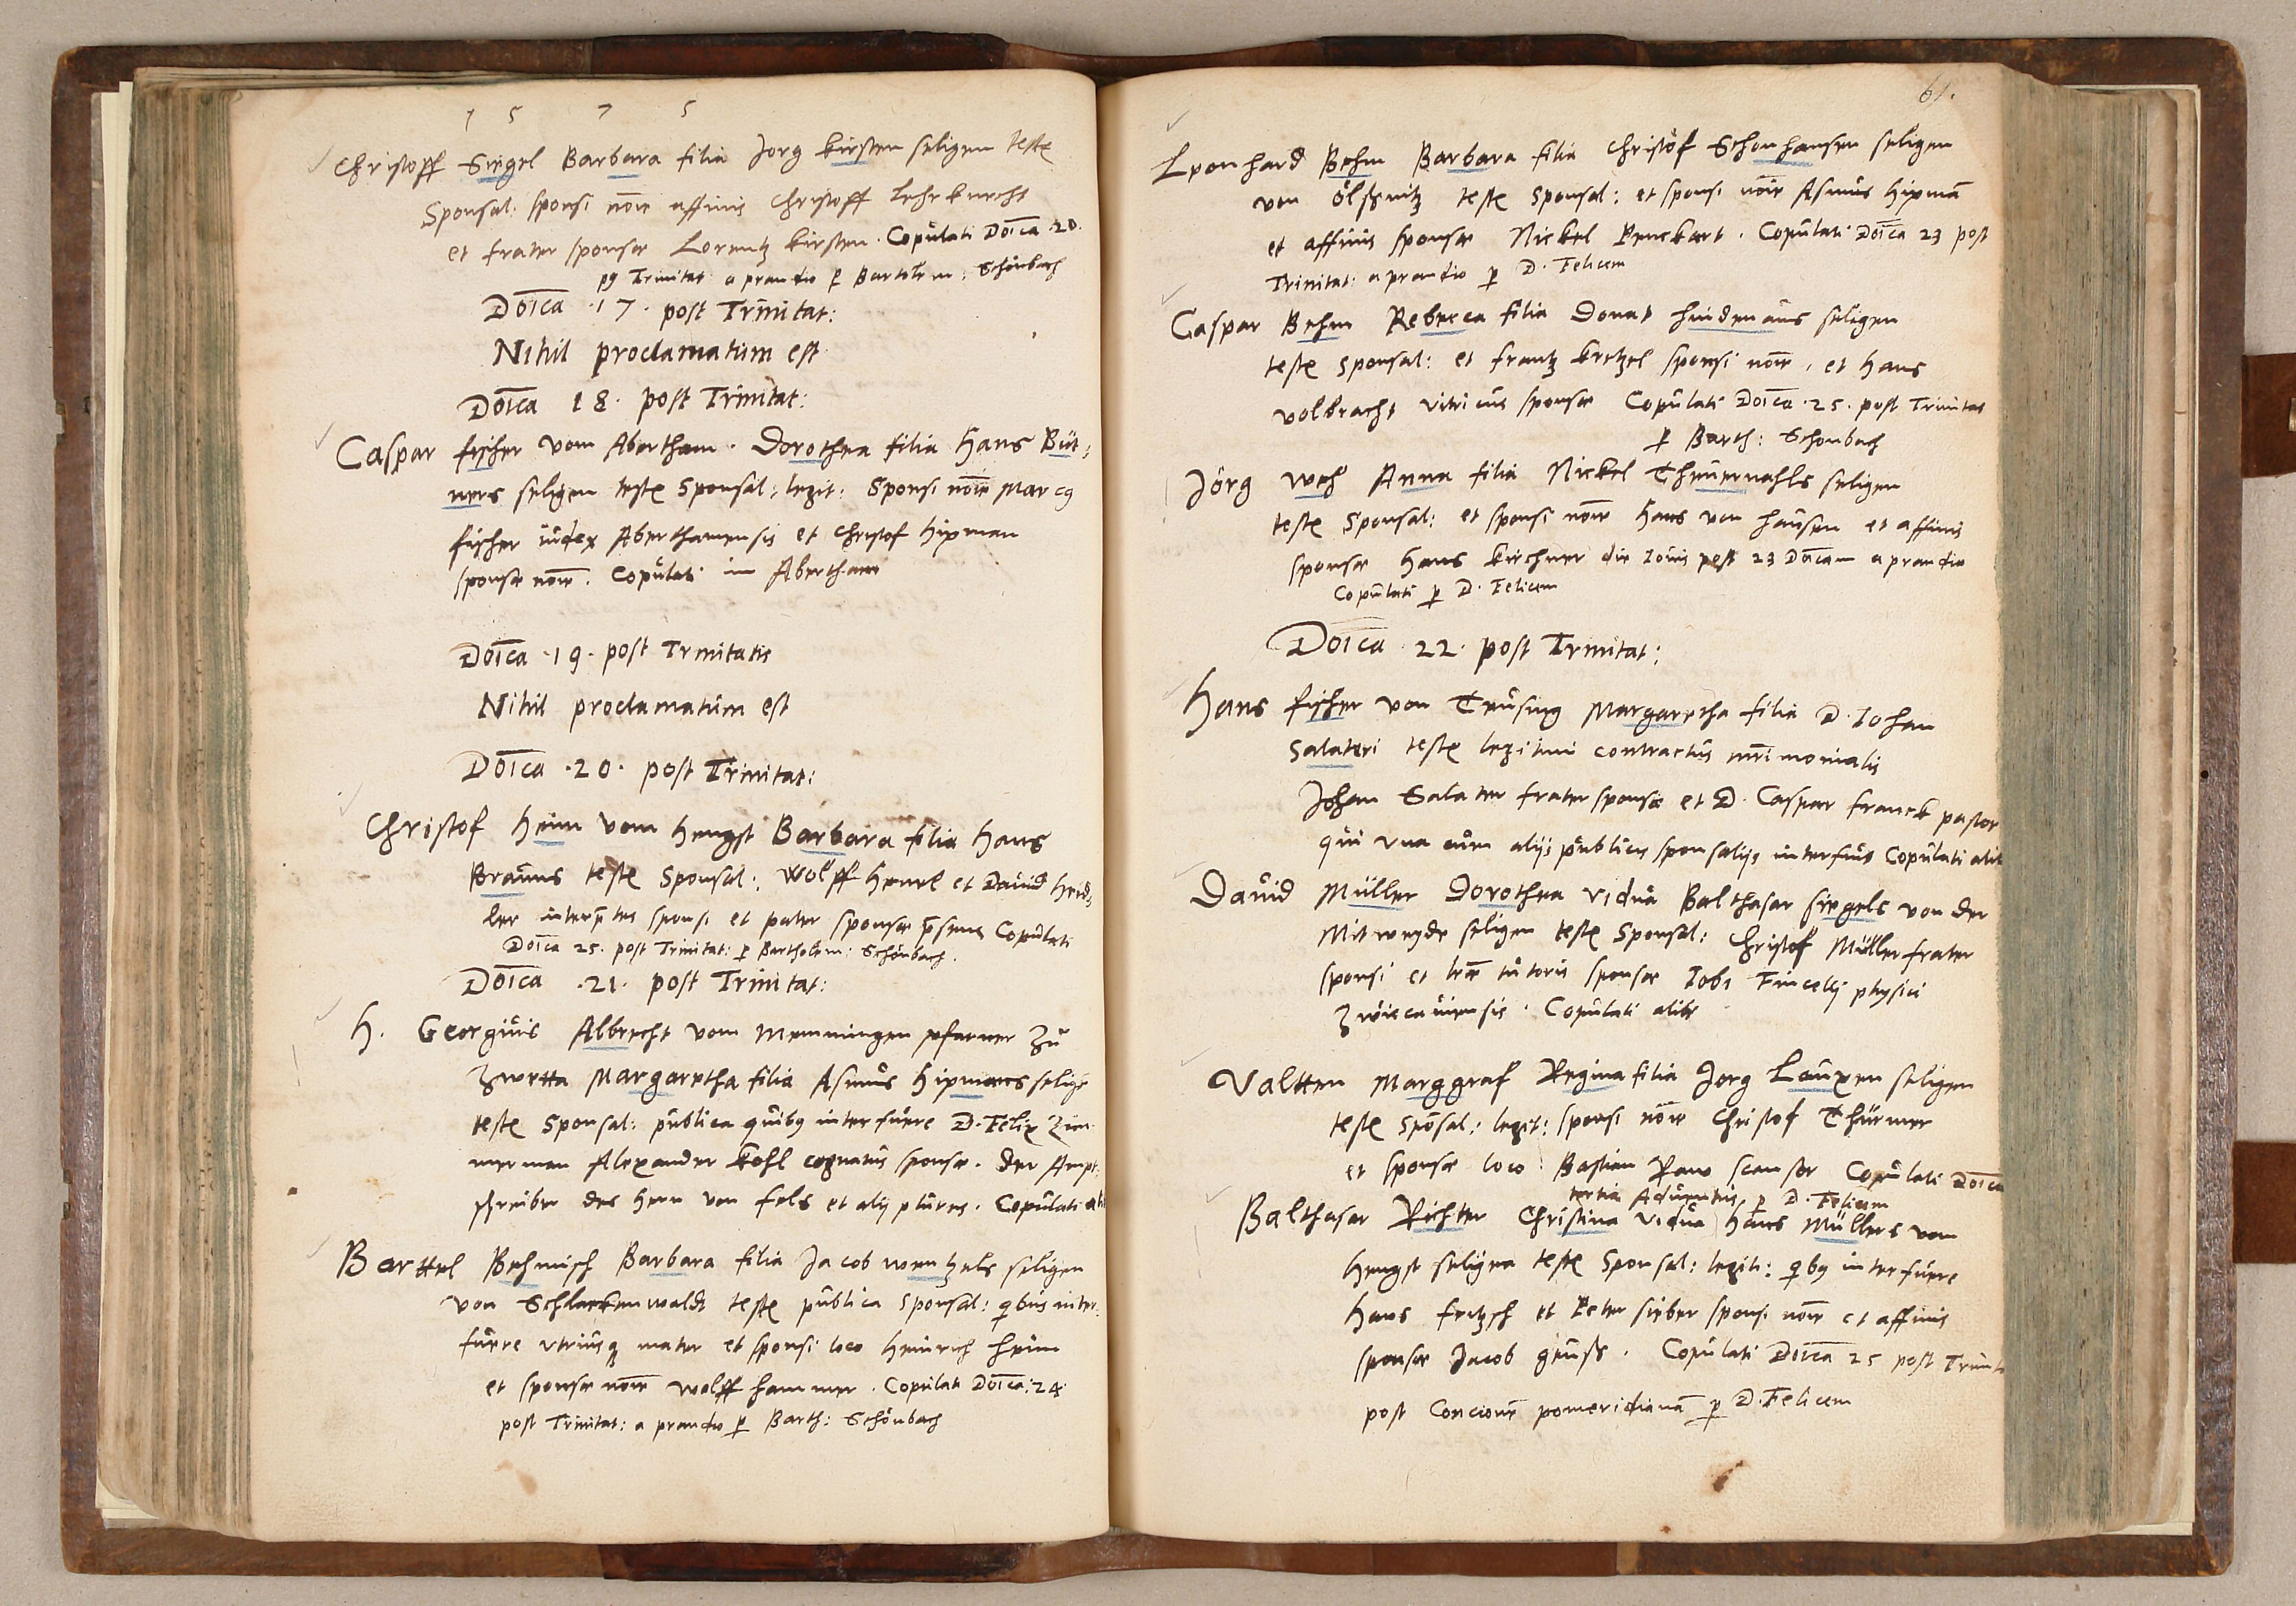 1 5 7 5
Christoff Siegel Barbara filia Jorg kirsten seligen teste
Sponsal: sponsi noīe affinis Christoff Lehrknecht
et frater sponsae Lorentz kirsten. Copulati Doīca .20.
p9 Trinitat a prandio p Bartolem: Schönbach
Doīca .17. post Trinitat:
Nihil proclamatum est
Doīca 18. post Trinitat:
Caspar fischer vom Abertham. Dorothea filia Hans Büt:
ners seligen teste Sponsal: legit: Sponsi noīe Marc9
fischer iudex Aberthamensis et Christof Hipman
sponsae noīe. Copulati in Abertham
Doīca .19. post Trinitatis
Nihil proclamatum est
Doīca .20. post Trinitat:
Christof Heim vom Hengst Barbara filia Hans
Brauns teste Sponsal: Wolff Henel et Dauid Heid,
ler interp̄tes sponsi et pater sponsae p̄sens Copulati
Doīca 25. post Trinitat: p Bartholem: Schönbach.
Doīca .21. post Trinitat:
H. Georgius Albrecht vom Memmingen pfarrer zu
Zwetta Margaretha filia Asmus Hipmans selige
teste Sponsal: publica quib9 interfuere D. Felix Zim
merman Alexander Kohl cognatus sponsae. der Ampt
schreiber des Hern von Fels et alij plures. Copulati ali
Barttel Behmisch Barbara filia Jacob wentzels seligen
von Schlackenwaldt teste publica Sponsal: qbus inter,
fuere vtriusq mater et sponsi loco Heinrich Heim
et sponsae noīe Wolff Hammer. Copulati Doīca: 24
post Trinitat: a prandio p Barth: Schönbach
61.
Leonhard Behm Barbara filia Christof Schonhansen seligen
von ölßnitz teste Sponsal: et sponsi noīe Asmus Hipmā
et affinis sponsae Nickel Penckert. Copulati Doīca 23 post
Trinitat: a prandio p D. Felicem
Caspar Behm Rebecca filia Donat Hindenaus seligen
teste Sponsal: et frantz kretzel sponsi noīe, et Hans
volbracht vitricus sponsae Copulati Doīca .25. post Trinitat
p Barth: Schonbach
Jörg Weh Anna filia Nickel Theuernahls seligen
teste Sponsal: et sponsi noīe Hans von Hausen et affinis
sponsae Hans kirchner die Iouis post 23 Doīcam a prandio
Copulati p D. Felicem
Doīca .22. post Trinitat:
Hans fischer von Teusing Margaretha filia D. Iohan
Salateri teste legitimi contractus mr̄imonialis
Johan Salater frater sponsae et D. Caspar franck pastor
qui vna cum alijs publicis sponsalijs interfuit Copulati alib
Dauid Müller Dorothea vidua Balthasar siegels von der
Mitweyde seligen teste Sponsal: Christof Müller frater
sponsi et lr̄ae tutoris sponsae Iobi Fincelij physici
Zwiccauiensis. Copulati alibi
Valtten Marggraf Regina filia Jorg Lauxen seligen
teste Spōsal: legit: sponsi noīe Christof Thürmer
et sponsae loco Bastian Raw scansor Copulati Doīca
tertia Aduentus p D. Felicem
Balthasar Richter Christina vidua Hans Müllers vom
Hengst seligen teste Sponsal: legit: qib9 interfuere
Hans fritzsch et Peter sieber sponsi noīe et affinis
sponsae Jacob geuß. Copulati Doīca 25 post Trinit
post Concionē pomeridianā p D. Felicem